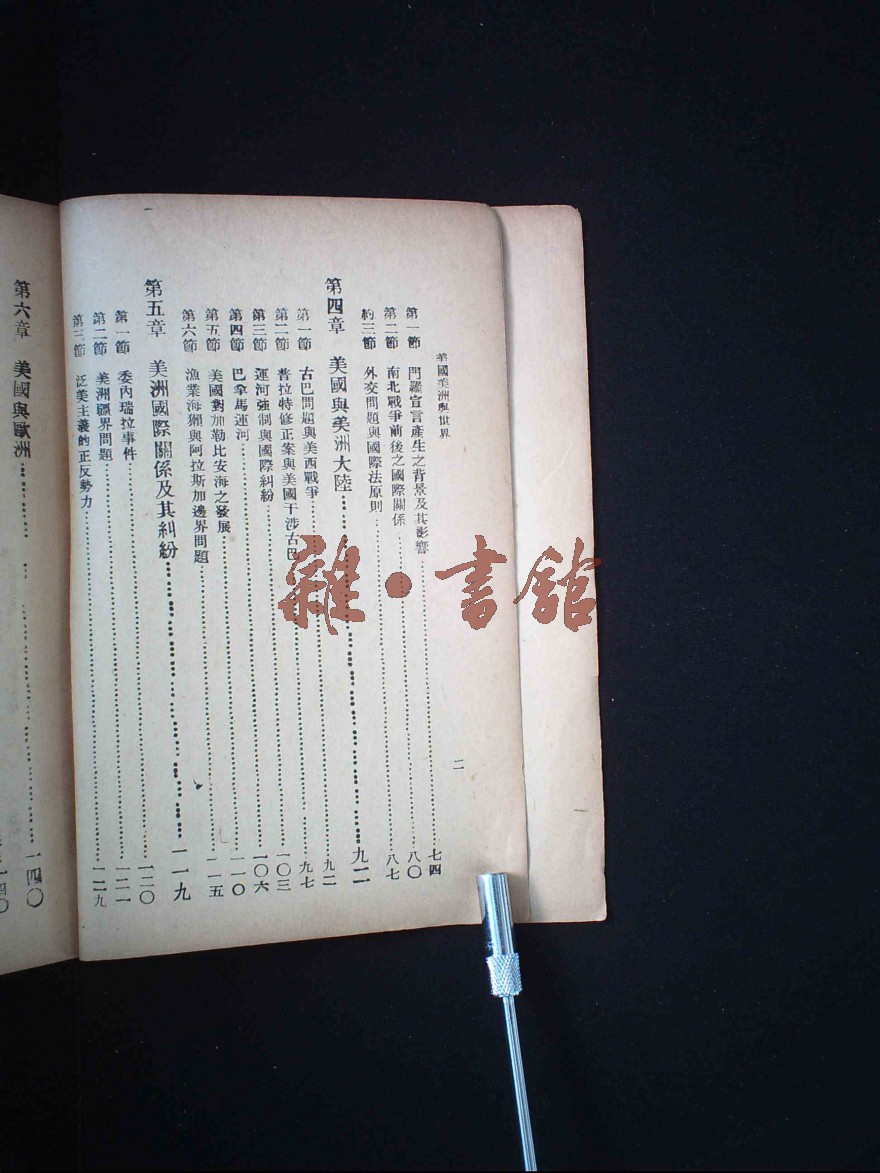 美國美洲與世界
二
第一節 門羅宣言產生之背景及其影響 七四
第二節 南北戰爭前後之國際關係 八〇
第三節 外交問題與國際法原則 八七
第四章 美國與美洲大陸 九二
第一節 古巴問題與美西戰爭 九二
第二節 普拉特修正案與美國干涉古巴 九七
第三節 運河強制與國際糾紛 一〇三
第四節 巴拿馬運河 一〇六
第五節 美國對加勒比安海之發展 一一〇
第六節 漁業海獺與阿拉斯加邊界問題 一一五
第五章 美洲國際關係及其糾紛 一一九
第一節 委內瑞拉事件 一二〇
第二節 美洲疆界問題 一二一
第三節 泛美主義的正反勢力 一二九
第六章 美國與歐洲 一四〇
一四〇
雜·書館